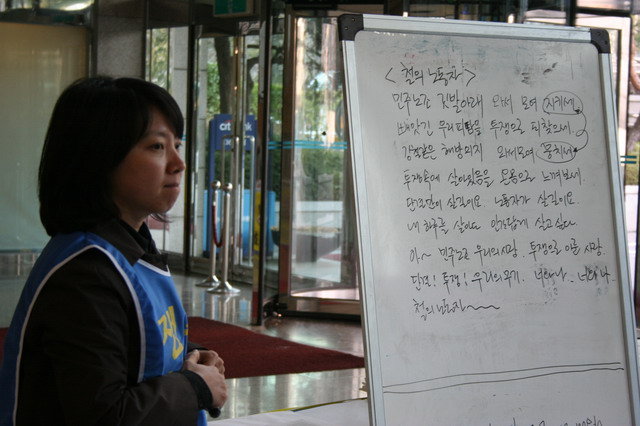 <철의 노동자>
민주노조 깃발아래 와서 모여 지키세
빼앗긴 우리피땀을 투쟁으로 되찾으세
강철같은 해방의지 와서모여 뭉치세
투쟁속에 살아있음을 온몸으로 느껴보세
단결만이 살길이요 노동자가 살길이요
내 하루를 살아도 인간답게 살고 싶다
아~ 민주노조 우리의사랑 투쟁으로 이룬 사랑
단결! 투쟁! 우리의무기 너와나.. 너와 나..
철의 노동자~~~
citibank